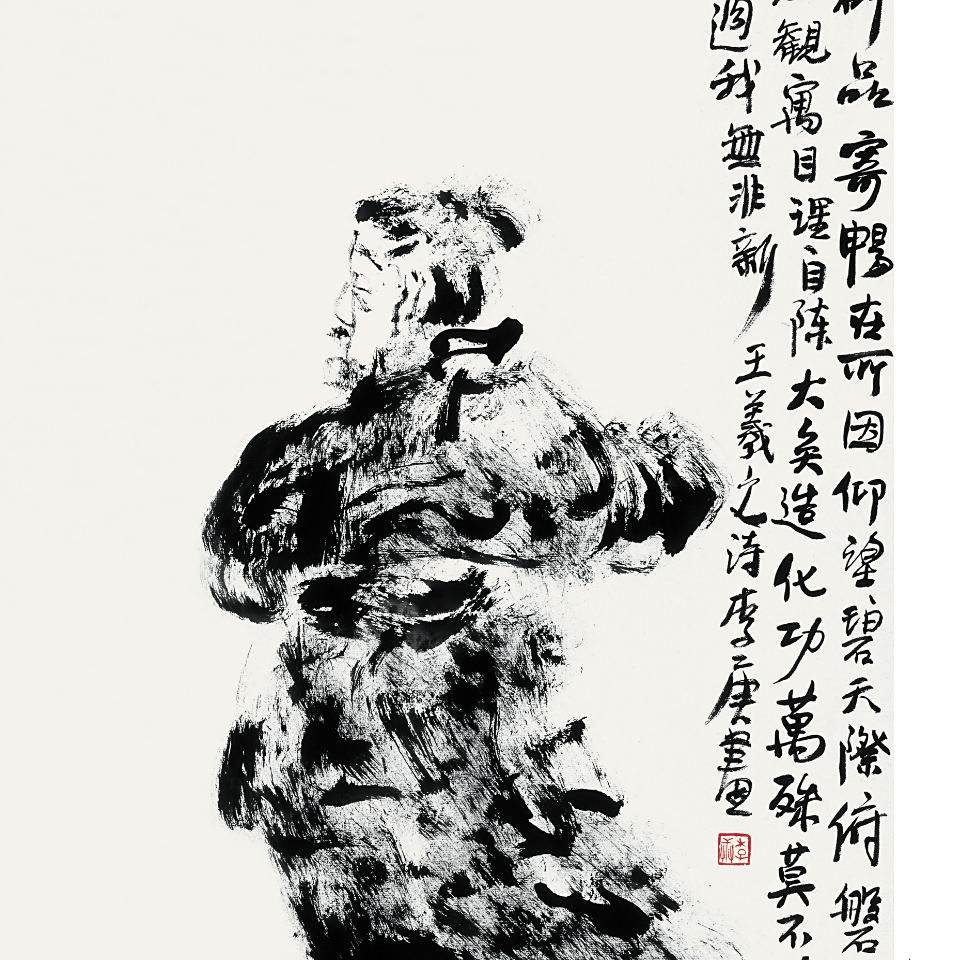 品寄暢在所因仰望碧天際俯磐
觀寓目理自陳大矣造化功萬殊莫不
適我無非新 王羲之詩 李庚畫